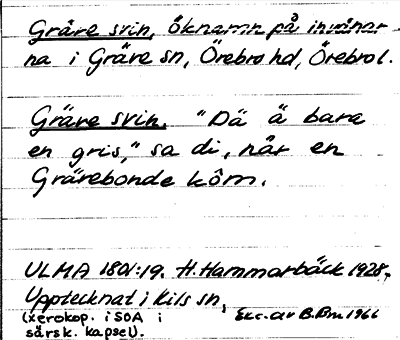 Gräre svin, öknamn på invånar
na i Gräve sn, Örebro hd, Örebro l.
Gräre svin. "Dä ä bara
en gris," sa di, när en
Grärebonde kôm.
ULMA 1801:19. H. Hammarbäck 1928.
Upptecknat i Kils sn,
(xerokop. i SOA i
särsk. kapsel).
Exc. av B.Bm 1966